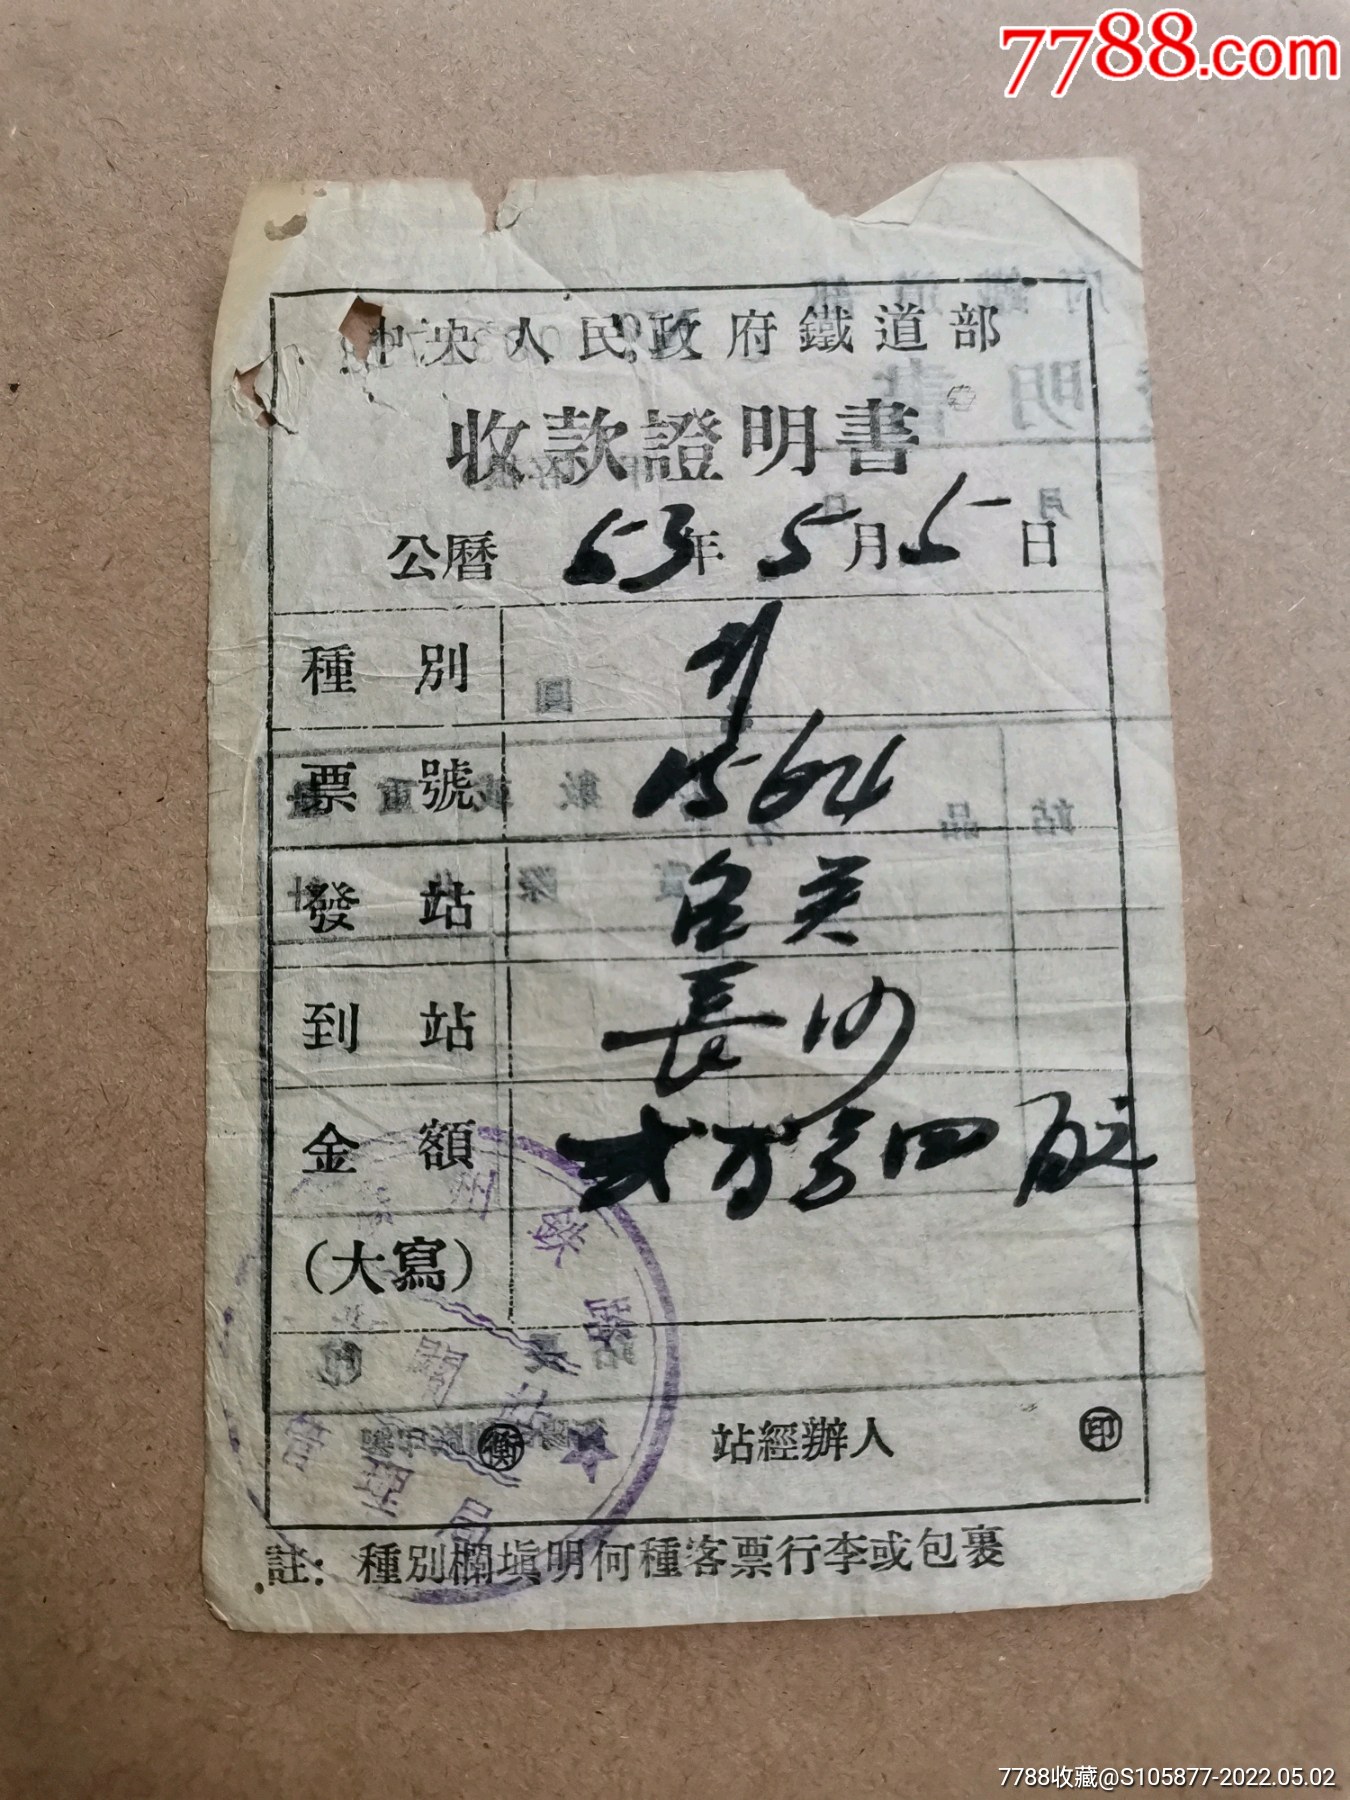 7788.com
中央人民政府鐵道部
收款證明書
公曆 53年 5月 5日
種別
票號 15624
發站
到站 長沙
金額 弍万零四百元
(大寫)
衡 站經辦人 印
註：種別欄填明何種客票行李或包裹
7788收藏@S105877-2022.05.02